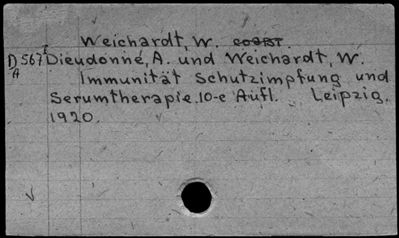 Weichardt, W.
D 567 I Dieudonné, A. und Weichardt, W.
A Immunität Schutzimpfung und
Serumtherapie. 10-e Aufl. Leipzig.
1920.